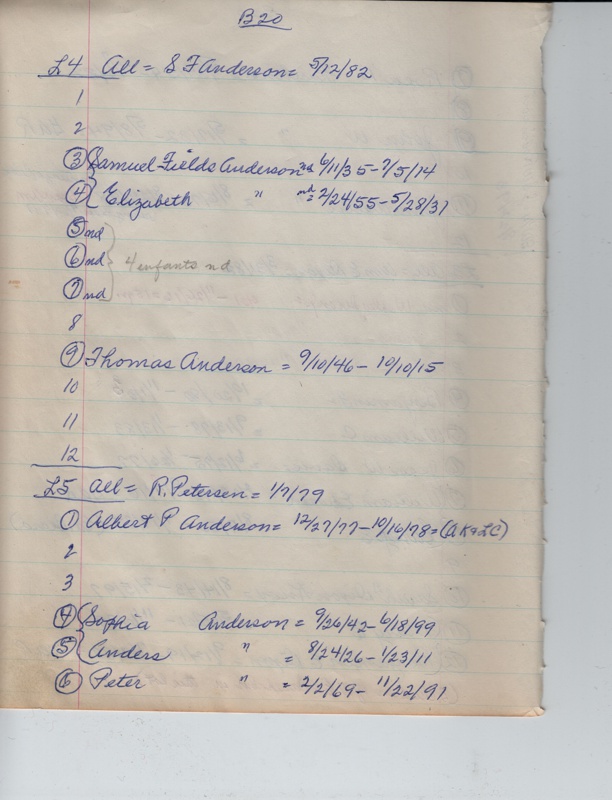 B20
L4 All = S F Anderson = 5/12/82
1
2
3 Samuel Fields Anderson nd 6/11/35 - 7/5/14
4 Elizabeth " nd = 2/24/55 - 5/28/31
5 nd
6 nd 4 enfants nd
7 nd
8
9 Thomas Anderson = 9/10/46 - 10/10/15
10
11
12
L5 all = R. Petersen = 1/7/79
1 Albert P Anderson = 12/27/77 - 10/16/78 = (AK&LC)
2
3
4 Sophia Anderson = 9/26/42 - 6/18/99
5 Anders " = 8/24/26 - 1/23/11
6 Peter " = 2/2/69 - 11/22/91